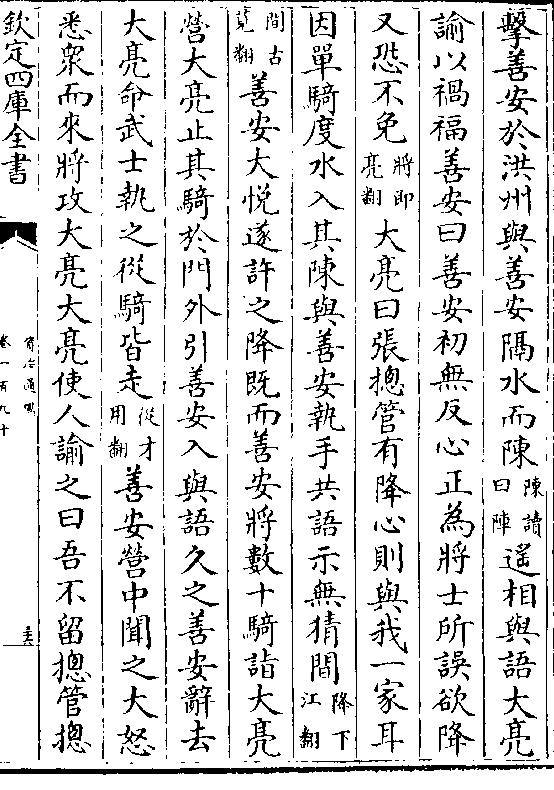 擊善安於洪州與善安隔水而陳陳讀曰陣遥相與語大亮
諭以禍福善安曰善安初無反心正為將士所誤欲降
又恐不免將即亮翻大亮曰張揔管有降心則與我一家耳
因單騎度水入其陳與善安執手共語示無猜間降下江翻
間古莧翻善安大悦遂許之降既而善安將數十騎詣大亮
營大亮止其騎於門外引善安入與語久之善安辭去
大亮命武士執之從騎皆走從才用翻善安營中聞之大怒
悉衆而來將攻大亮大亮使人諭之曰吾不留揔管揔
欽定四庫全書
資治通鑑
卷一百九十